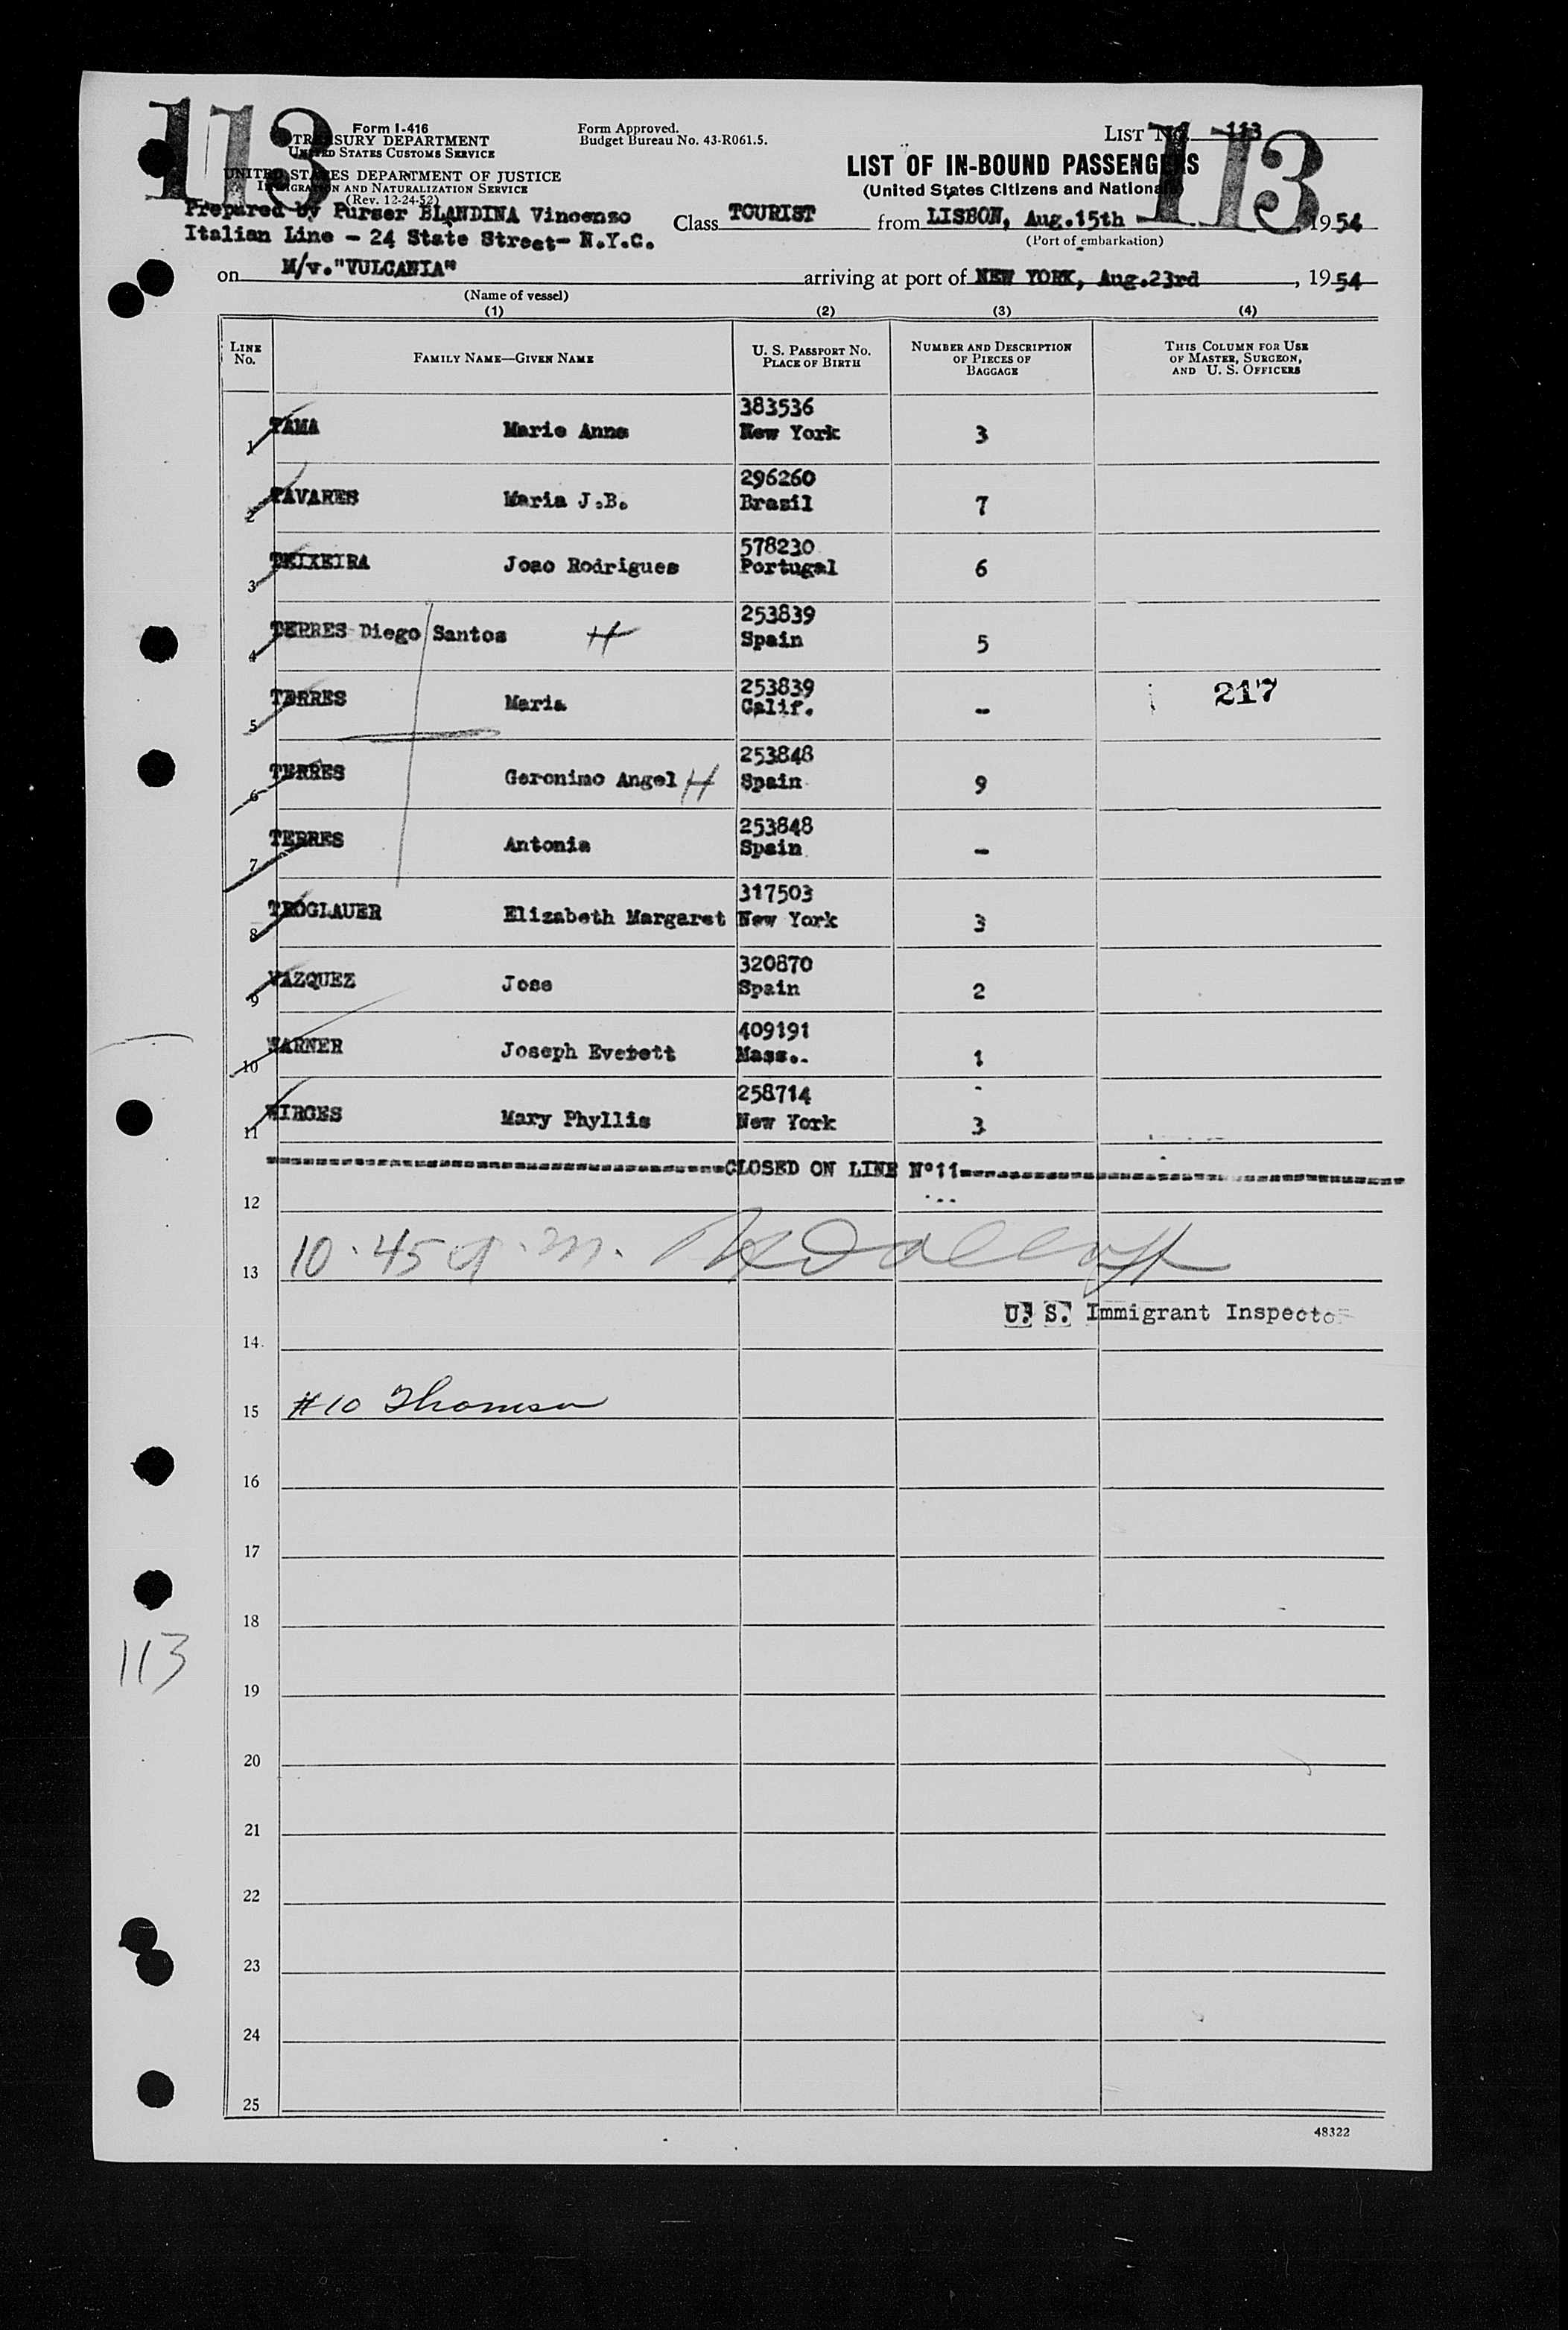 113
Form I-416
TREASURY DEPARTMENT
UNITED STATES CUSTOMS SERVICE
UNITED STATES DEPARTMENT OF JUSTICE
IMMIGRATION AND NATURALIZATION SERVICE
(Rev. 12-24-52)
Form Approved.
Budget Bureau No. 43-R061.5.
LIST No. 113
113
LIST OF IN-BOUND PASSENGERS
(United States Citizens and Nationals)
Prepared by Purser BLANDINA Vincenzo
Italian Line - 24 State Street- N.Y.C.
Class TOURIST from LISBON, Aug.15th 1954
(Port of embarkation)
on M/v."VULCANIA" arriving at port of NEW YORK, Aug.23rd , 1954
(Name of vessel)
(1) (2) (3) (4)
LINE No. FAMILY NAME—GIVEN NAME U. S. PASSPORT NO. PLACE OF BIRTH NUMBER AND DESCRIPTION OF PIECES OF BAGGAGE THIS COLUMN FOR USE OF MASTER, SURGEON, AND U. S. OFFICERS
383536
1 TAMA Marie Anna New York 3
296260
2 TAVARES Maria J.B. Brazil 7
578230
3 TEIXEIRA Joao Rodrigues Portugal 6
253839
4 TERRES Diego Santos H Spain 5
253839
5 TERRES Maria Calif. - 217
253848
6 TERRES Geronimo Angel H Spain 9
253848
7 TERRES Antonia Spain -
317503
8 TROGLAUER Elizabeth Margaret New York 3
320870
9 VAZQUEZ Jose Spain 2
409191
10 WARNER Joseph Everett Mass. 1
258714
11 WIRGES Mary Phyllis New York 3
CLOSED ON LINE N°11
12
13 10.45 a.m.
U. S. Immigrant Inspector
14
15 #10 Thomson
16
17
18
113
19
20
21
22
23
24
25
48322